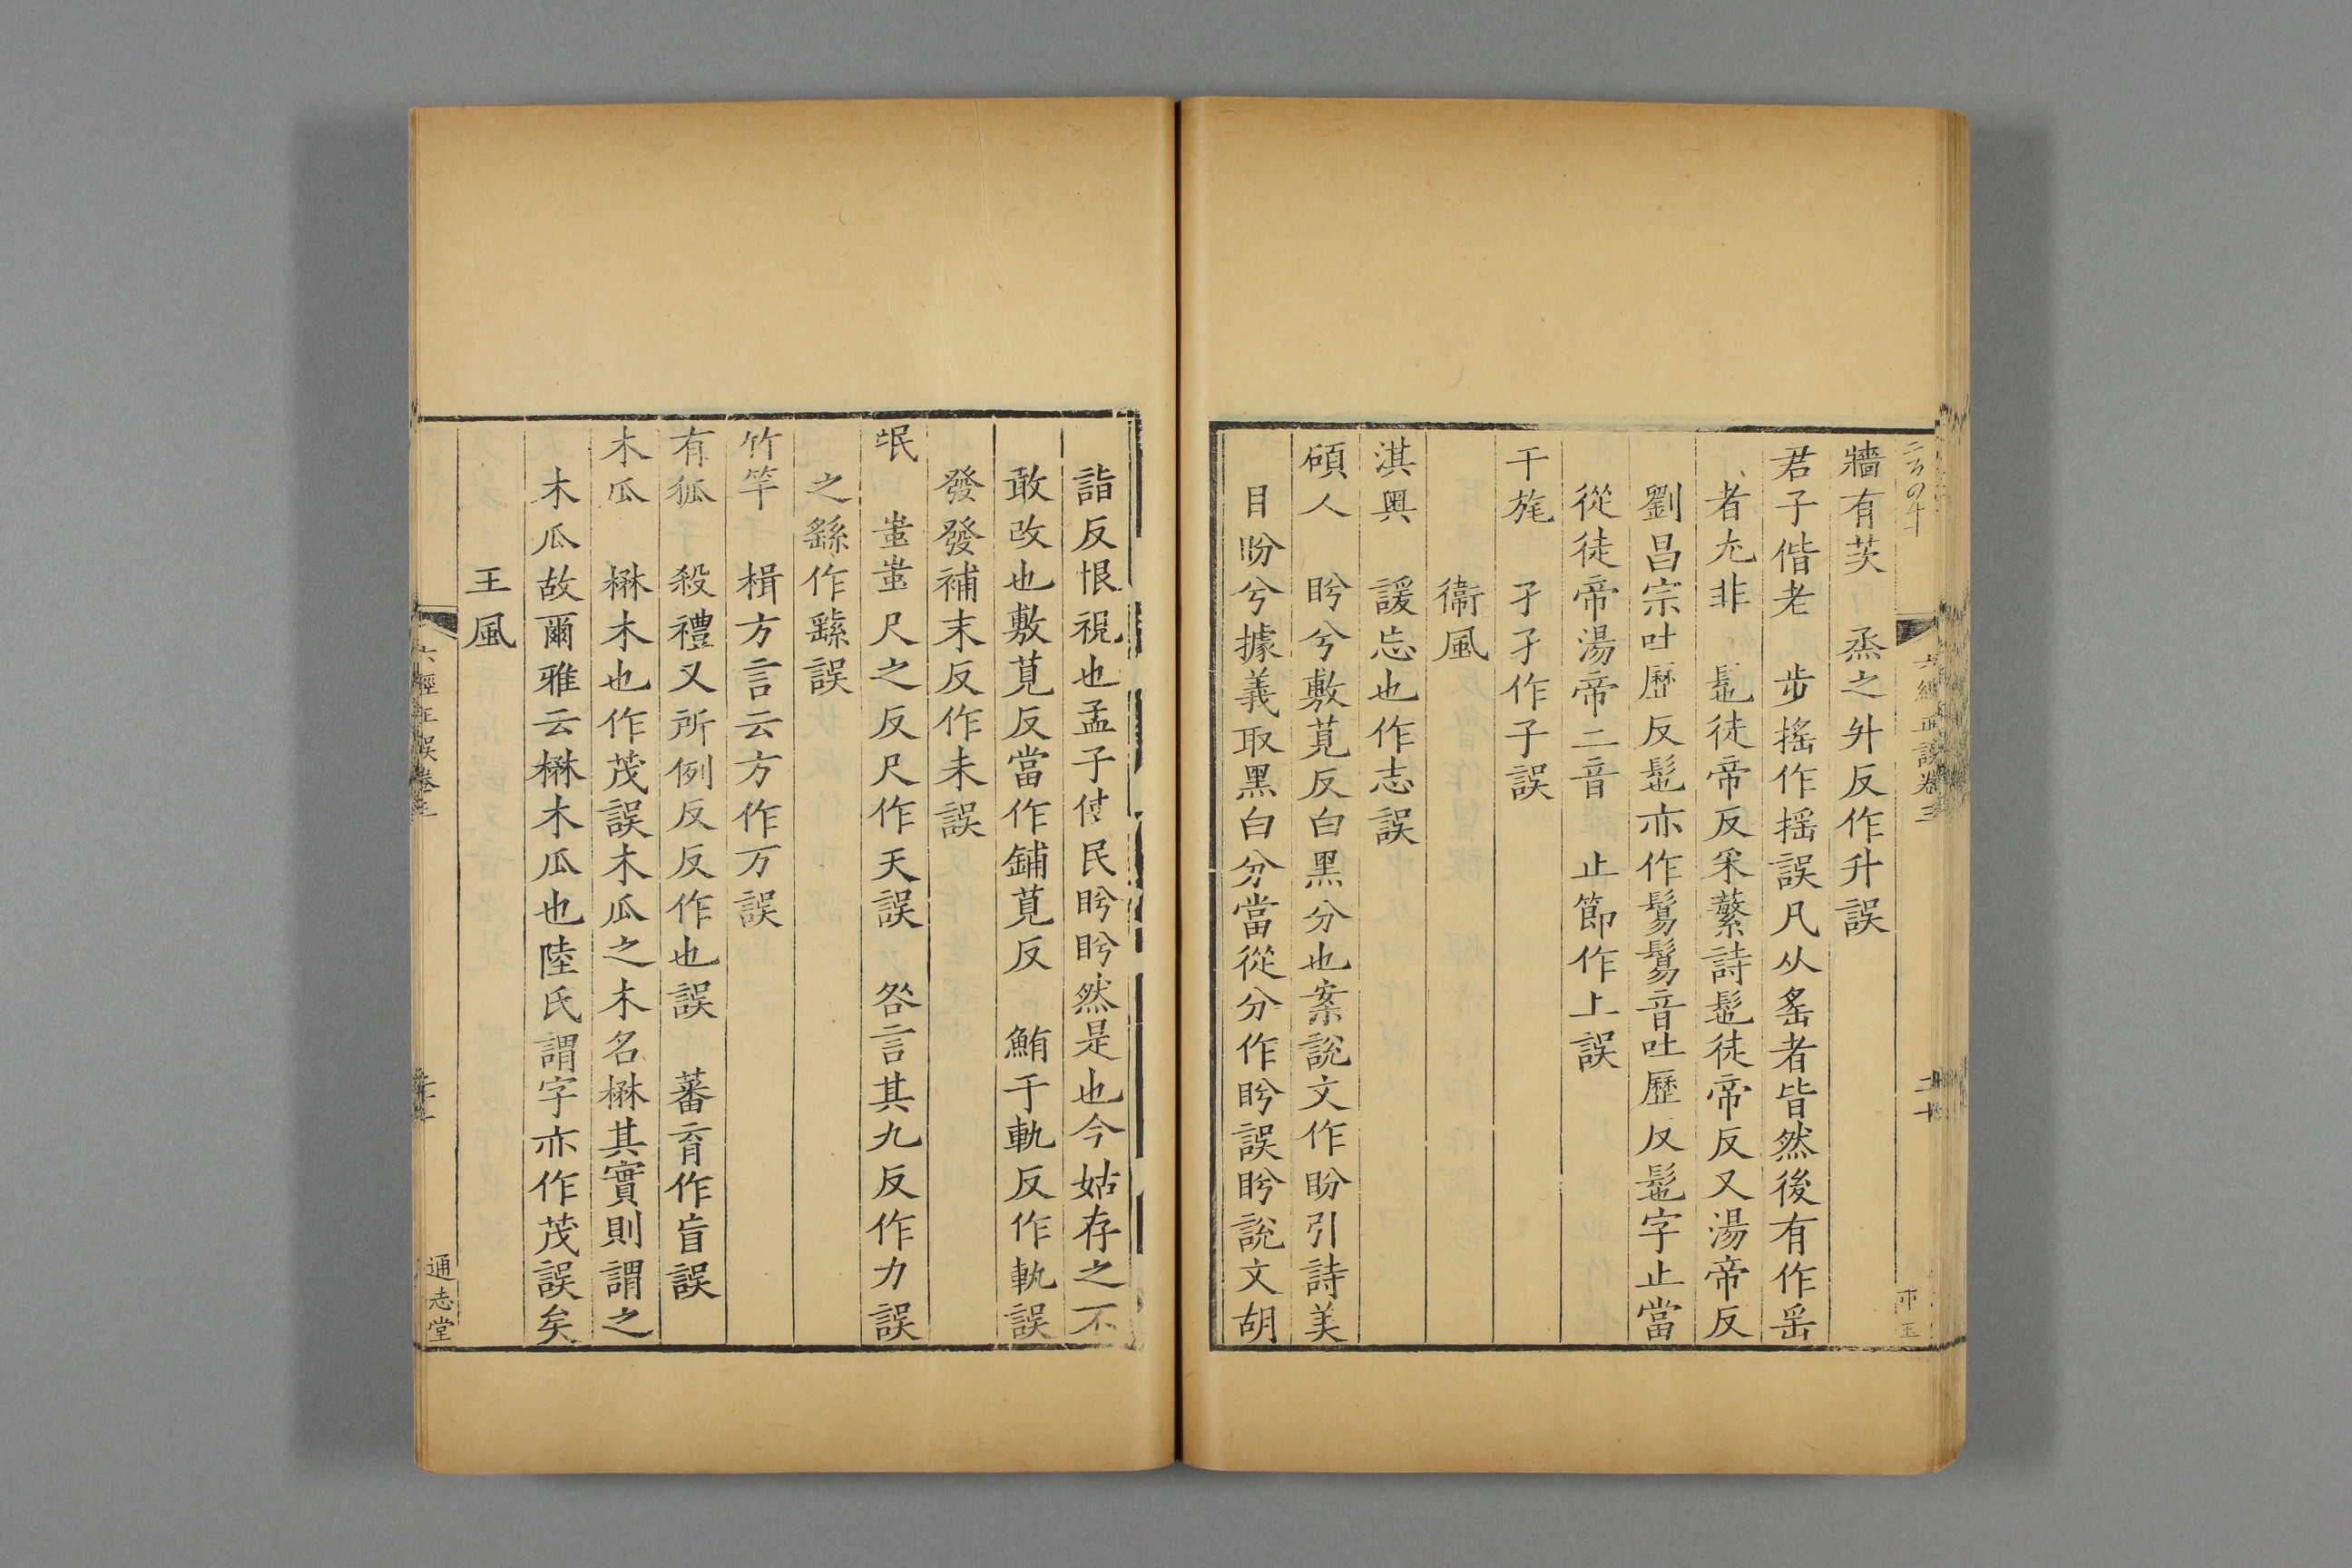 六經正誤卷三
二十
牆有茨　烝之升反作升誤
君子偕老　步搖作揺誤凡从䍃者皆然後有作䍃
者尤非　髢徒帝反采蘩詩髢徒帝反又湯帝反
劉昌宗吐歷反髢亦作鬄鬄音吐歷反髢字止當
從徒帝湯帝二音　止節作上誤
干旄　孑孑作子誤
衞風
淇奧　諼忘也作志誤
碩人　盻兮敷莧反白黑分也案說文作盼引詩美
目盼兮據義取黑白分當從分作盻誤盻說文胡
詣反恨視也孟子使民盻盻然是也今姑存之不
敢改也敷莧反當作鋪莧反　鮪于軌反作執誤
發發補末反作未誤
氓　蚩蚩尺之反尺作天誤　咎言其九反作力誤
之繇作繇誤
竹竿　楫方言云方作万誤
有狐　殺禮又所例反反作也誤　蕃育作盲誤
木瓜　楙木也作茂誤木瓜之木名楙其實則謂之
木瓜故爾雅云楙木瓜也陸氏謂字亦作茂誤矣
王風
六經正誤卷三
通志堂